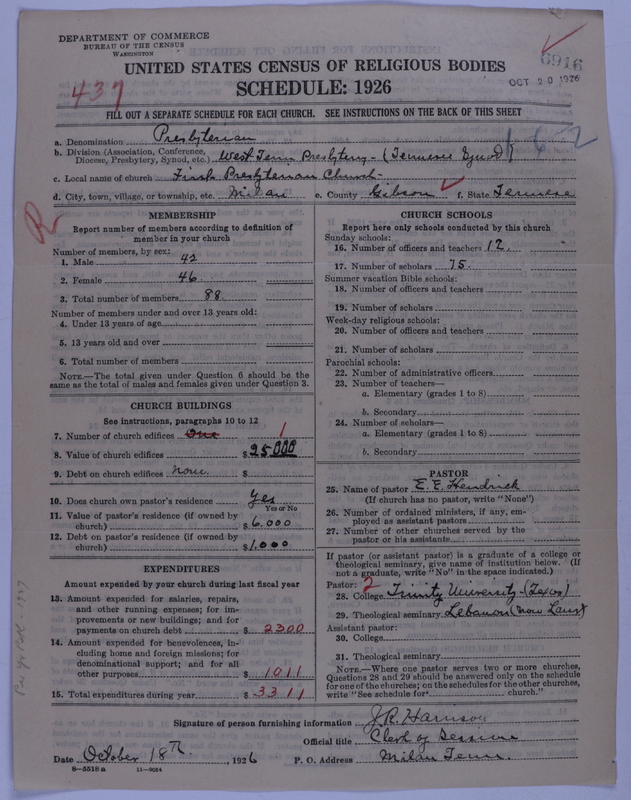 DEPARTMENT OF COMMERCE
BUREAU OF THE CENSUS
WASHINGTON
6916
OCT 20 1926
UNITED STATES CENSUS OF RELIGIOUS BODIES
437
SCHEDULE: 1926
FILL OUT A SEPARATE SCHEDULE FOR EACH CHURCH. SEE INSTRUCTIONS ON THE BACK OF THIS SHEET
a. Denomination Presbyterian
b. Division (Association, Conference, Diocese, Presbytery, Synod, etc.) West Tenn Presbytery - (Tennessee Synod)
c. Local name of church First Presbyterian Church -
d. City, town, village, or township, etc. Milan e. County Gibson f. State Tennessee
R
MEMBERSHIP
Report number of members according to definition of
member in your church
Number of members, by sex:
1. Male 42
2. Female 46
3. Total number of members 88
Number of members under and over 13 years old:
4. Under 13 years of age
5. 13 years old and over
6. Total number of members
NOTE.—The total given under Question 6 should be the
same as the total of males and females given under Question 3.
CHURCH BUILDINGS
See instructions, paragraphs 10 to 12
7. Number of church edifices One 1
8. Value of church edifices $25000
9. Debt on church edifices None $
10. Does church own pastor's residence Yes
Yes or No
11. Value of pastor's residence (if owned by
church) $6.000
12. Debt on pastor's residence (if owned by
church) $1.000
EXPENDITURES
Amount expended by your church during last fiscal year
13. Amount expended for salaries, repairs,
and other running expenses; for im-
provements or new buildings; and for
payments on church debt $2300
14. Amount expended for benevolences, in-
cluding home and foreign missions; for
denominational support; and for all
other purposes $1011
15. Total expenditures during year $3311
CHURCH SCHOOLS
Report here only schools conducted by this church
Sunday schools:
16. Number of officers and teachers 12.
17. Number of scholars 75.
Summer vacation Bible schools:
18. Number of officers and teachers
19. Number of scholars
Week-day religious schools:
20. Number of officers and teachers
21. Number of scholars
Parochial schools:
22. Number of administrative officers
23. Number of teachers—
a. Elementary (grades 1 to 8)
b. Secondary
24. Number of scholars—
a. Elementary (grades 1 to 8)
b. Secondary
PASTOR
25. Name of pastor E. E. Hendrick
(If church has no pastor, write "None")
26. Number of ordained ministers, if any, em-
ployed as assistant pastors
27. Number of other churches served by the
pastor or his assistants
If pastor (or assistant pastor) is a graduate of a college or
theological seminary, give name of institution below. (If
not a graduate, write "No" in the space indicated.)
Pastor: 2
28. College Trinity University - (Texas)
29. Theological seminary Lebanon (now
Assistant pastor:
30. College
31. Theological seminary
NOTE.—Where one pastor serves two or more churches,
Questions 28 and 29 should be answered only on the schedule
for one of the churches; on the schedules for the other churches,
write "See schedule for church."
Signature of person furnishing information J.R. Harrison
Official title Clerk of Session
Date October 18th, 1926 P. O. Address Milan Tenn.
8—5518 a 11—9024